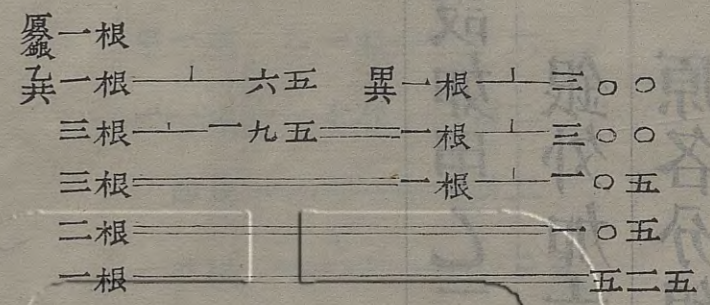 原銀一根
乙共一根⊥六五 甲共一根⊥三〇〇
三根⊥一九五══一根⊥三〇〇
三根══一根⊥一〇五
二根══一〇五
一根══五二五